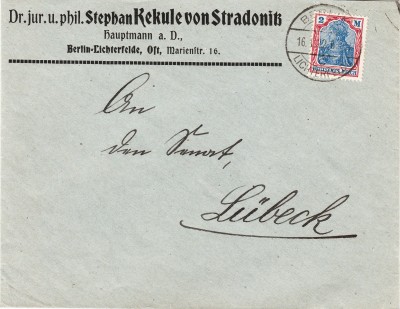 Dr. jur. u. phil. Stephan Kekule von Stradonitz
Hauptmann a. D.,
Berlin-Lichterfelde, Ost, Marienstr. 16.
2 M
16.
An
den Senat,
Lübeck